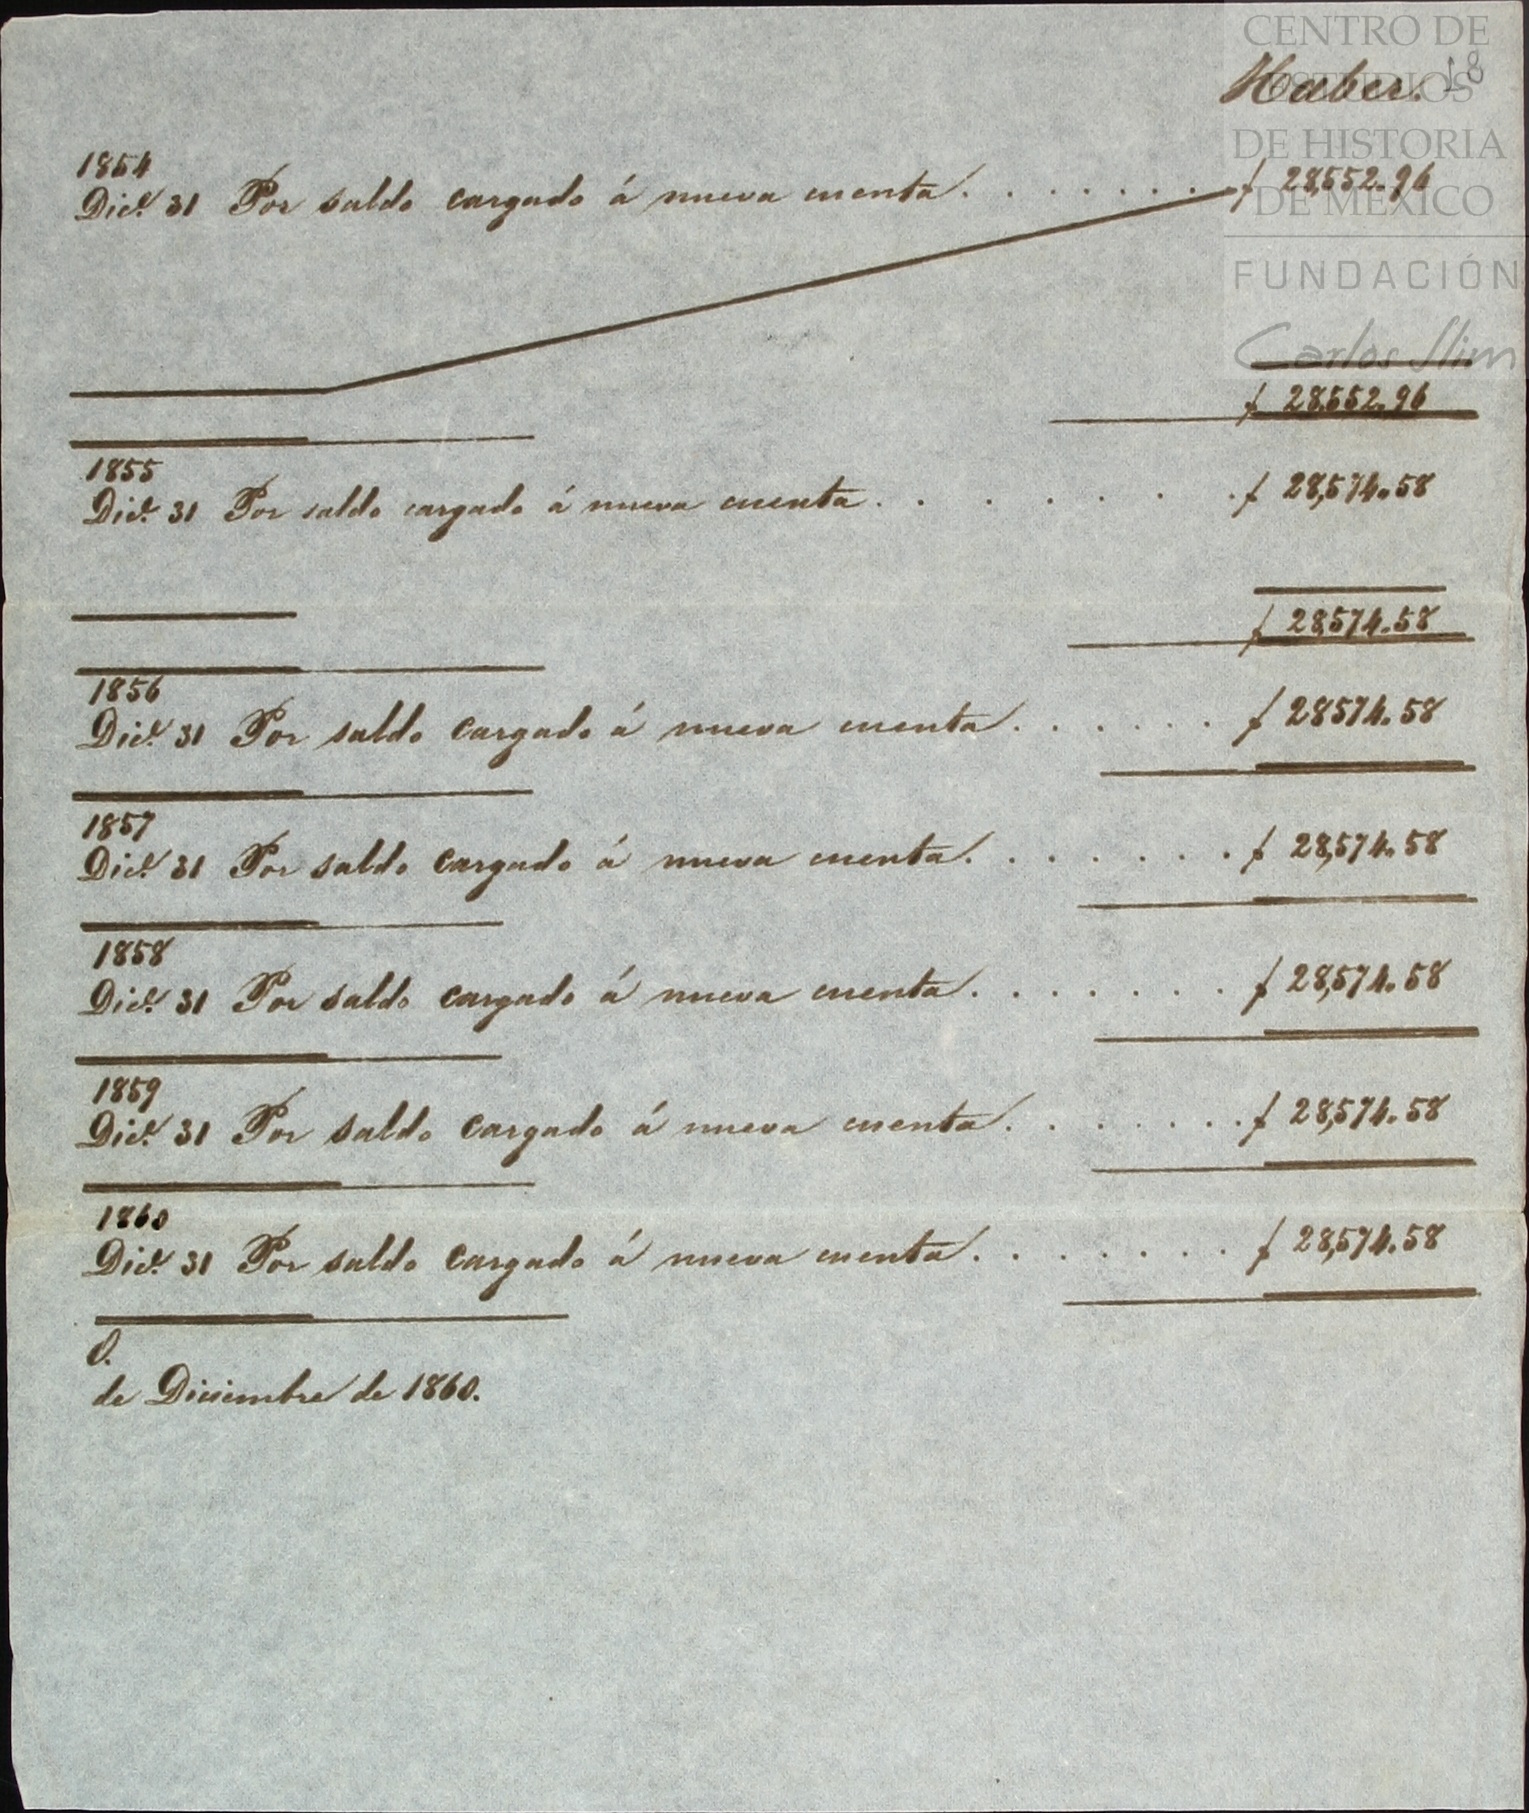 CENTRO DE
ESTUDIOS
DE HISTORIA
DE MÉXICO
FUNDACIÓN
Carlos Slim
Haber. 18
1854
Dice. 31 Por saldo cargado á nueva cuenta. . . . . . . $ 28,552.96
$ 28,552.96
1855
Dice. 31 Por saldo cargado á nueva cuenta. . . . . . . $ 28,574.58
$ 28,574.58
1856
Dice. 31 Por saldo cargado á nueva cuenta. . . . . . $ 28574.58
1857
Dice. 31 Por saldo cargado á nueva cuenta. . . . . . . $ 28,574.58
1858
Dice. 31 Por saldo cargado á nueva cuenta. . . . . . . $ 28,574.58
1859
Dice. 31 Por saldo cargado á nueva cuenta. . . . . . . $ 28,574.58
1860
Dice. 31 Por saldo cargado á nueva cuenta. . . . . . . $ 28,574.58
O.
de Diciembre de 1860.